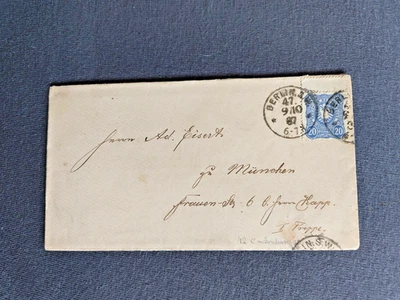 BERLIN. S.W.
47.
9/10
87
6-7N
20 20
Herrn Ad. Eisert
zu München
Frauen-Str. 6 b. Herrn Kapp.
I Treppe.
IN. S.W.